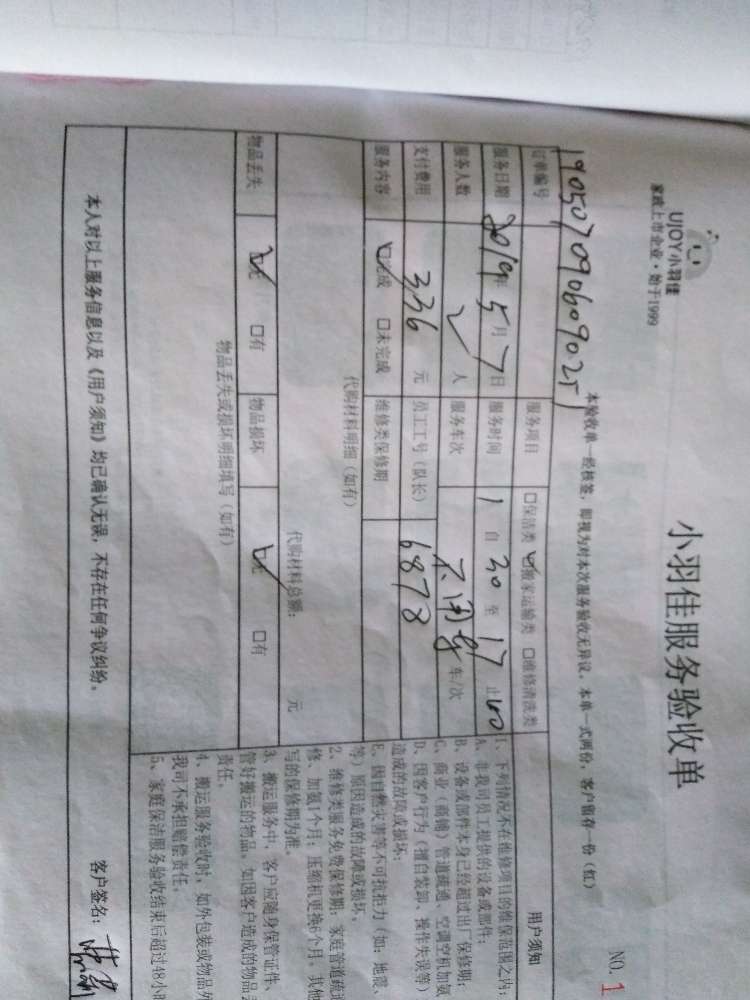 UJOY小羽佳
家政上市企业·始于1999
小羽佳服务验收单
NO. 1
本验收单一经核签，即视为对本次服务验收无异议。本单一式两份，客户留存一份（红）
订单编号 19050709060902511 服务项目 □保洁类 ☑搬家运输类 □维修清洗类
服务日期 2019年5月7日 服务时间 自 30 至 17 止
服务人数 人 服务车次 不用车 车/次
支付费用 336 元 员工工号（队长） 6878
服务内容 ☑完成 □未完成 维修类保修期
代购材料明细（如有）
代购材料总额： 元
物品丢失 ☑无 □有 物品损坏 ☑无 □有
物品丢失或损坏明细填写（如有）
本人对以上服务信息以及《用户须知》均已确认无误，不存在任何争议纠纷。
客户签名：
用户须知
1、下列情况不在维修项目的维保范围之内：
A、非我司员工提供的设备或部件；
B、设备或部件本身已经超过出厂保修期；
C、商业（商铺）管道疏通、空调空机加氨
D、因客户行为（擅自装卸、操作失误等）
造成的故障或损坏；
E、因自然灾害等不可抗拒力（如：地震、
等）原因造成的故障或损坏。
2、维修类服务免费保修期：家庭管道疏通
修、加氨1个月；压缩机更换6个月，其他
写的保修期为准。
3、搬运服务中，客户应随身保管证件、
管好搬运的物品。如因客户造成的物品丢
责任。
4、搬运服务验收时，如外包装或物品外
我司不承担赔偿责任。
5、家庭保洁服务验收结束后超过48小时